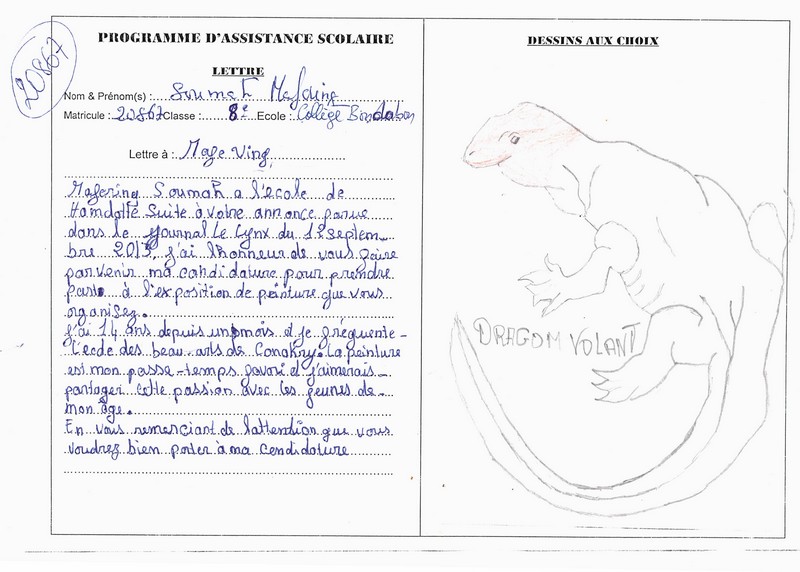 20867
PROGRAMME D'ASSISTANCE SCOLAIRE
LETTRE
Nom & Prénom(s) : Soumah
Matricule : 20867 Classe : 8e Ecole : Collège
Lettre à :
Soumah a l'ecole de
Suite à votre annonce parue
dans le Journal Le Lynx du 1er Septem-
bre 2013, j'ai l'honneur de vous faire
parvenir ma candidature pour prendre
part à l'exposition de peinture que vous
organisez.
j'ai 14 ans depuis un mois et je fréquente
l'ecole des beau-arts de Conakry. La peinture
est mon passe-temps favori et j'aimerais
partager cette passion avec les jeunes de
mon âge.
En vous remerciant de l'attention que vous
voudrez bien porter à ma candidature
DESSINS AUX CHOIX
DRAGOM VOLANT